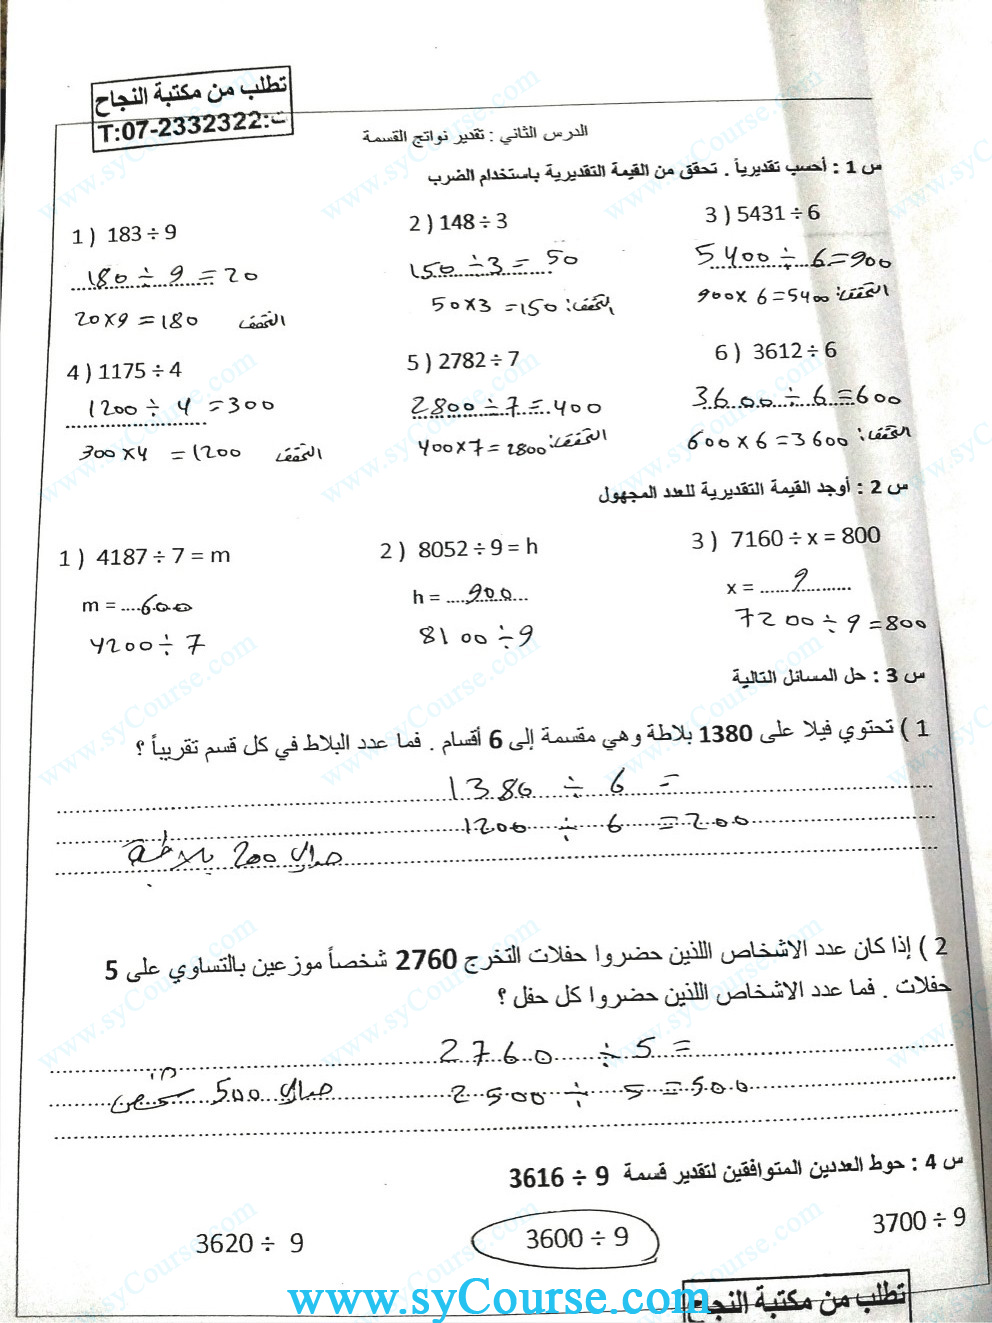 تطلب من مكتبة النجاح
T:07-2332322:ت
الدرس الثاني : تقدير نواتج القسمة
س 1 : أحسب تقديرياً . تحقق من القيمة التقديرية باستخدام الضرب
1 ) 183 ÷ 9
2 ) 148 ÷ 3
3 ) 5431 ÷ 6
180 ÷ 9 = 20
150 ÷ 3 = 50
5400 ÷ 6 = 900
20 x 9 = 180 التحقق
50 x 3 = 150 التحقق:
900 x 6 = 5400 التحقق:
4 ) 1175 ÷ 4
5 ) 2782 ÷ 7
6 ) 3612 ÷ 6
1200 ÷ 4 = 300
2800 ÷ 7 = 400
3600 ÷ 6 = 600
300 x 4 = 1200 التحقق
400 x 7 = 2800 التحقق:
600 x 6 = 3600 التحقق:
س 2 : أوجد القيمة التقديرية للعدد المجهول
1 ) 4187 ÷ 7 = m
2 ) 8052 ÷ 9 = h
3 ) 7160 ÷ x = 800
m = 600
h = 900
x = 9
4200 ÷ 7
8100 ÷ 9
7200 ÷ 9 = 800
س 3 : حل المسائل التالية
1 ) تحتوي فيلا على 1380 بلاطة وهي مقسمة إلى 6 أقسام . فما عدد البلاط في كل قسم تقريباً ؟
1380 ÷ 6 =
1200 ÷ 6 = 200
حوالي 200 بلاطة
2 ) إذا كان عدد الاشخاص اللذين حضروا حفلات التخرج 2760 شخصاً موزعين بالتساوي على 5
حفلات . فما عدد الاشخاص اللذين حضروا كل حفل ؟
2760 ÷ 5 =
2500 ÷ 5 = 500
حوالي 500 شخص
س 4 : حوط العددين المتوافقين لتقدير قسمة 9 ÷ 3616
3700 ÷ 9
3600 ÷ 9
3620 ÷ 9
تطلب من مكتبة النجاح
www.syCourse.com